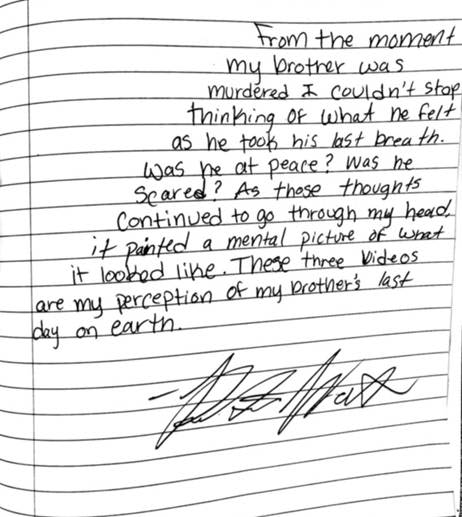 From the moment
my brother was
murdered I couldn't stop
thinking of what he felt
as he took his last breath.
Was he at peace? Was he
scared? As these thoughts
continued to go through my head,
it painted a mental picture of what
it looked like. These three videos
are my perception of my brother's last
day on earth.